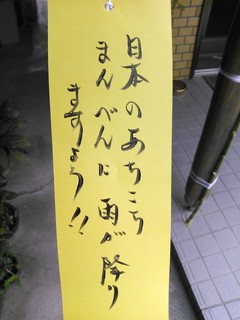 日本のあちこち
まんべんに雨が降り
ますよう!!